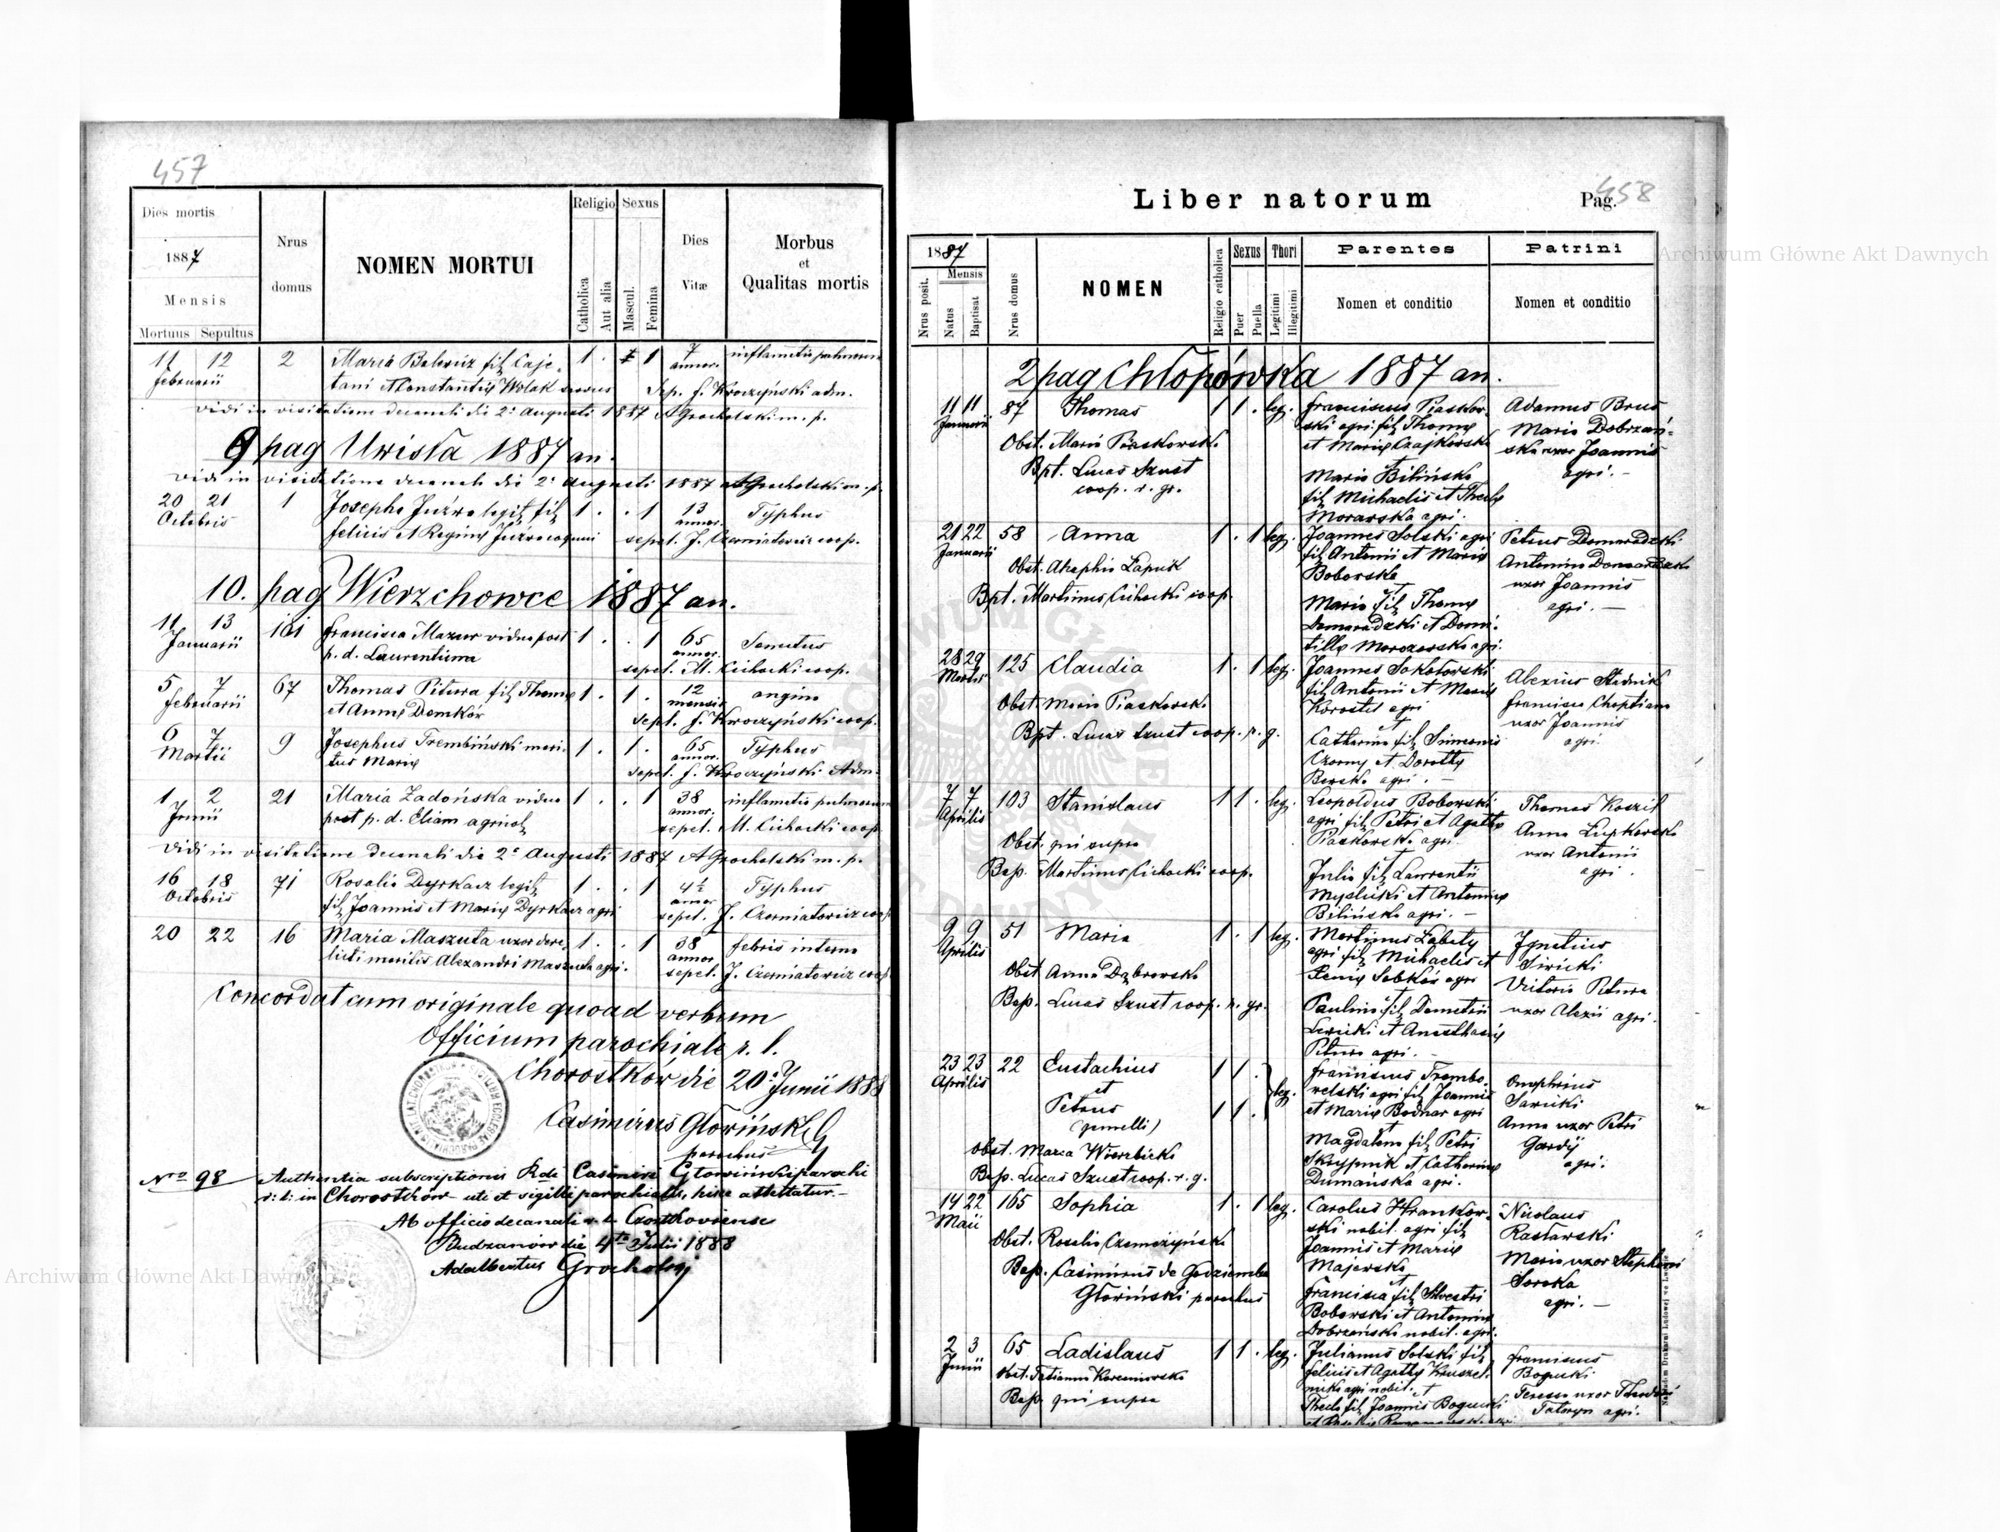 457
Dies mortis
1887
Mensis
Mortuus Sepultus
Nrus domus
NOMEN MORTUI
Religio
Catholica
Aut alia
Sexus
Mascul.
Femina
Dies Vitæ
Morbus
et
Qualitas mortis
11 12 2 Maria fil. Caje- 1 . 1 7 inflammatio pulmonum
februarii annor.
tani et Constantiæ Wolak Sep. f. Kroczyński adm.
Vidi in visitatione decanali die 2. Augusti 1887 AGrocholski m. p.
9 pag Uwisła 1887 an.
Vidi in visitatione decanali die 2. Augusti 1887 AGrocholski m. p.
20 21 1 Josepha legit. fil. 1 . . 1 13 Typhus
Octobris annor.
felicis et Reginæ sepel. J. Czerniatowicz coop.
10. pag Wierzchowce 1887 an.
11 13 161 francisca Mazur vidua post 1 . . 1 65 Senectus
Januarii annor.
p. d. Laurentium sepel. M. Cichocki coop.
5 7 67 Thomas Pitura fil. Thomæ 1 . 1 . 12 angina
februarii mensis
et Annæ Demków sepel. f. Kroczyński coop.
6 7 9 Josephus Trembiński mari- 1 . 1 . 65 Typhus
Martii annor.
tus Mariæ sepel. f. Kroczyński Adm.
1 2 21 Maria Zadońska vidua 1 . . 1 38 inflammatio pulmonum
Junii annor.
post p. d. Eliam agricol. sepel. M. Cichocki coop.
Vidi in visitatione decanali die 2. Augusti 1887 AGrocholski m. p.
16 18 71 Rosalia Dyrkacz legit. 1 . . 1 4½ Typhus
Octobris annor
fil. Joannis et Mariæ Dyrkacz agri sepel. J. Czerniatowicz coop
20 22 16 Maria Maszuta uxor dere- 1 . . 1 38 febris interna
annor.
licti maritis Alexandri Maszuta agri. sepel. J. Czerniatowicz coop
Concordat cum originale quoad verbum
Officium parochiale r. l.
Chorostków die 20. Junii 1888
Casimirus Głowiński
parochus
Nro 98 Authentia subscriptionis Rdi Casimiri Głowiński parochi
r. l. in Chorostków uti et sigilli parochialis, hisce attestatur.
Ab officio decanali r. l. Czortkoviense
Budzanów die 4ta Julii 1888
Adalbertus Grocholski
Liber natorum
Pag. 458
1887
Nrus posit.
Mensis
Natus
Baptisat
Nrus domus
NOMEN
Religio catholica
Sexus
Puer
Puella
Thori
Legitimi
Illegitimi
Parentes
Nomen et conditio
Patrini
Nomen et conditio
2 pag Chłopówka 1887 an.
11 11 87 Thomas 1 1 . leg. franciscus Piaskow- Adamus Brus
Januarii ski agri fil. Thomæ Maria Dobrzań-
Obst. Maria Piaskowska et Mariæ Czajkowska ska uxor Joannis
Bpt. Lucas Szust et agri.
coop. r. gr. Maria Bilińska
fil. Michaelis et Theclæ
Morawska agri.
21 22 58 Anna 1 . 1 leg. Joannes Solski agri Petrus Domaradzki
Januarii fil. Antonii et Mariæ Antonina Domaradzka
Obst. Ahaphia Łapuk Boborska uxor Joannis
Bpt. Martinus Cichocki coop. Maria fil. Thomæ agri.
Domaradzki et Domi-
tillæ Morawska agri.
28 29 125 Claudia 1 . 1 leg. Joannes Sokołowski Alexius Stadnik
Martii fil. Antonii et Mariæ francisca Choptiana
Obst. Maria Piaskowska Korostel agri uxor Joannis
Bpt. Lucas Szust coop. r. g. et agri.
Catharina fil. Simeonis
Czorny et Dorothæ
agri.
7 7 103 Stanislaus 1 1 . leg. Leopoldus Boborski Thomas Koszil
Aprilis agri fil. Petri et Agathæ Anna Lupkowska
Obst. qui supra Piaskowska agri. uxor Antonii
Bap. Martinus Cichocki coop. Julia fil. Laurentii agri.
Mysluski et Antoninæ
Bilińska agri.
9 9 51 Maria 1 . 1 leg. Martinus Łabaty Ignatius
Aprilis agri fil. Michaelis et Siwicki
Obst. Anna Dąbrowska Xeniæ Sobków agri Victoria Pitura
Bap. Lucas Szust coop. r. gr. Paulina fil. Demetrii uxor Alexii agri.
Lewicki et Anasthasiæ
Pitura agri.
23 23 22 Eustachius 1 1 . leg. franciscus Trembo- Onuphrius
Aprilis et welski agri fil. Joannis Sawicki
Petrus 1 1 . et Mariæ Bodnar agri Anna uxor Petri
(gemelli) Magdalena fil. Petri Gardij
Obst. Maria Wierzbicka Skrypnik et Catharinæ agri.
Bap. Lucas Szust coop. r. g. Dumańska agri.
14 22 165 Sophia 1 . 1 leg. Carolus Hrankow- Nicolaus
Maii ski nobil. agri fil. Rastawski
Obst. Rosalia Czemeżyńska Joannis et Mariæ Maria uxor Stephani
Bap. Casimirus de Godziemba Majewska Soroka
Głowiński parochus et agri.
francisca fil. Silvestri
Boborski et Antoninæ
Dobrzańska nobil. agri.
2 3 65 Ladislaus 1 1 . leg. Julianus Solski fil. franciscus
Junii felicis et Agathæ Kruszel- Bogucki
Obst. Tatianna Koreniowska nicka agri nobil. et Teressa uxor Theodori
Bap. qui supra Thecla fil. Joannis Bogucki Tataryn agri.
Archiwum Główne Akt Dawnych
Archiwum Główne Akt Dawnych